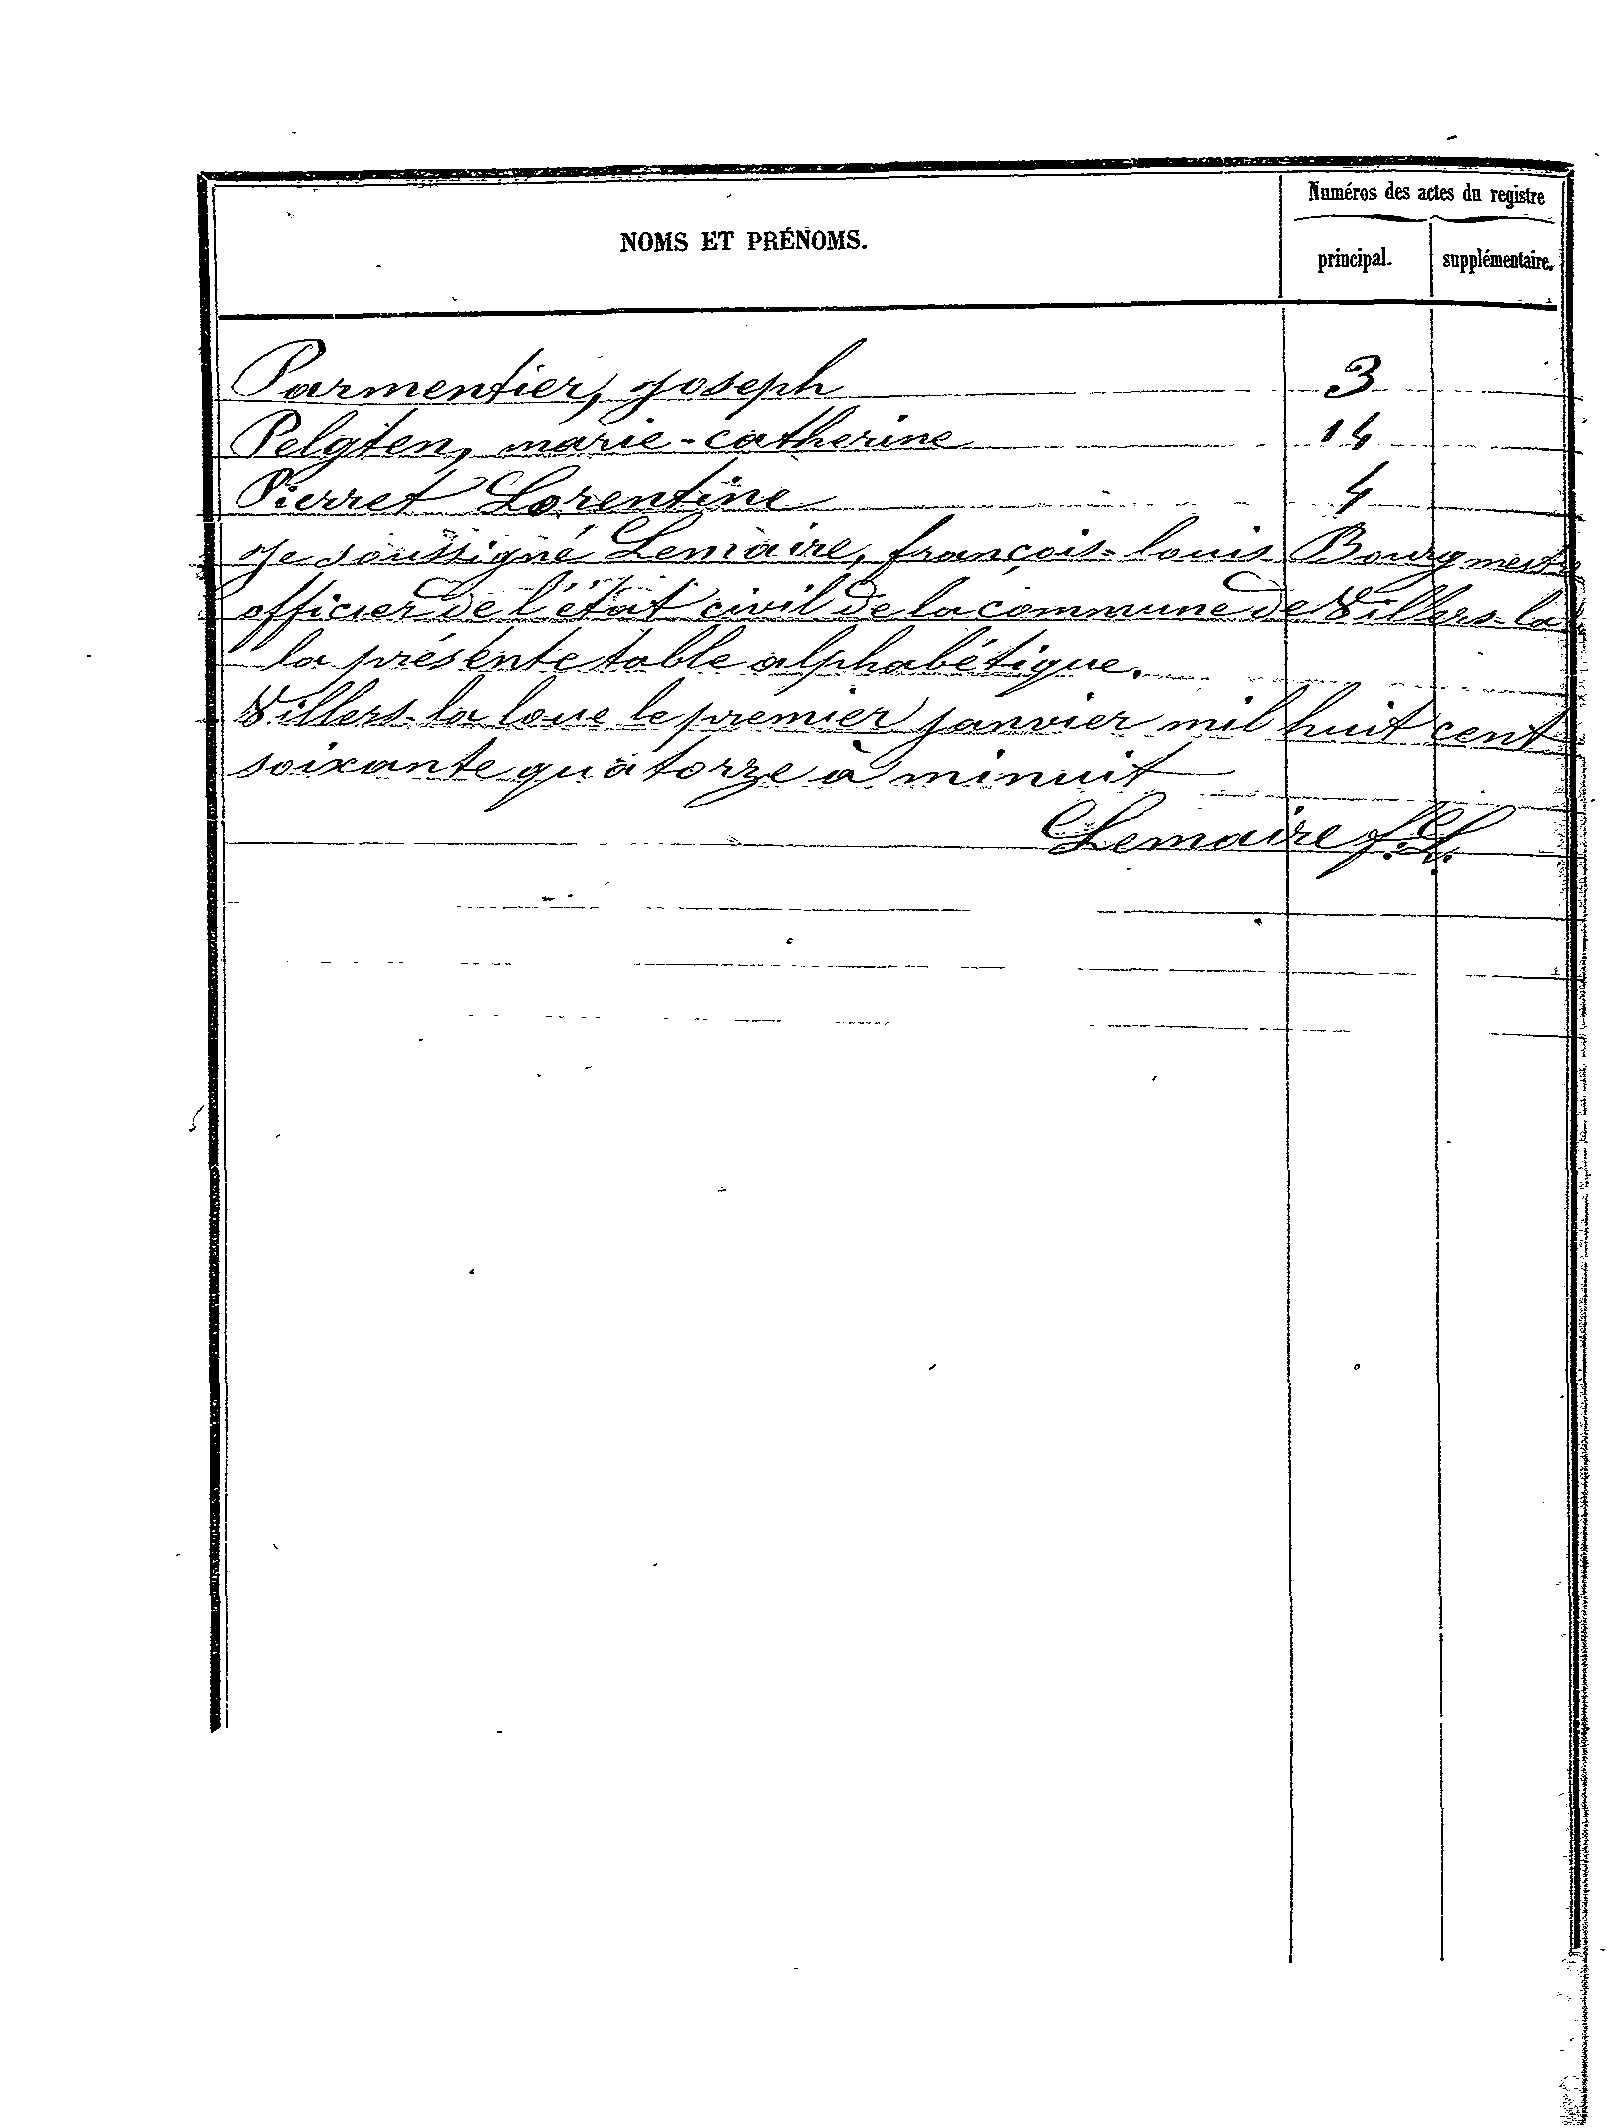 Numéros des actes du registre
NOMS ET PRÉNOMS.
principal. supplémentaire.
Parmentier, Joseph 3
Pelgten, marie-catherine 14
Pierret Lorentine 4
Je soussigné Lemaire, françois-louis Bourgmestre
officier de l'état civil de la commune de Villers-la
la présente table alphabétique.
Villers-la loue le premier janvier mil huit cent
soixante quatorze à minuit
Lemaire f. L.